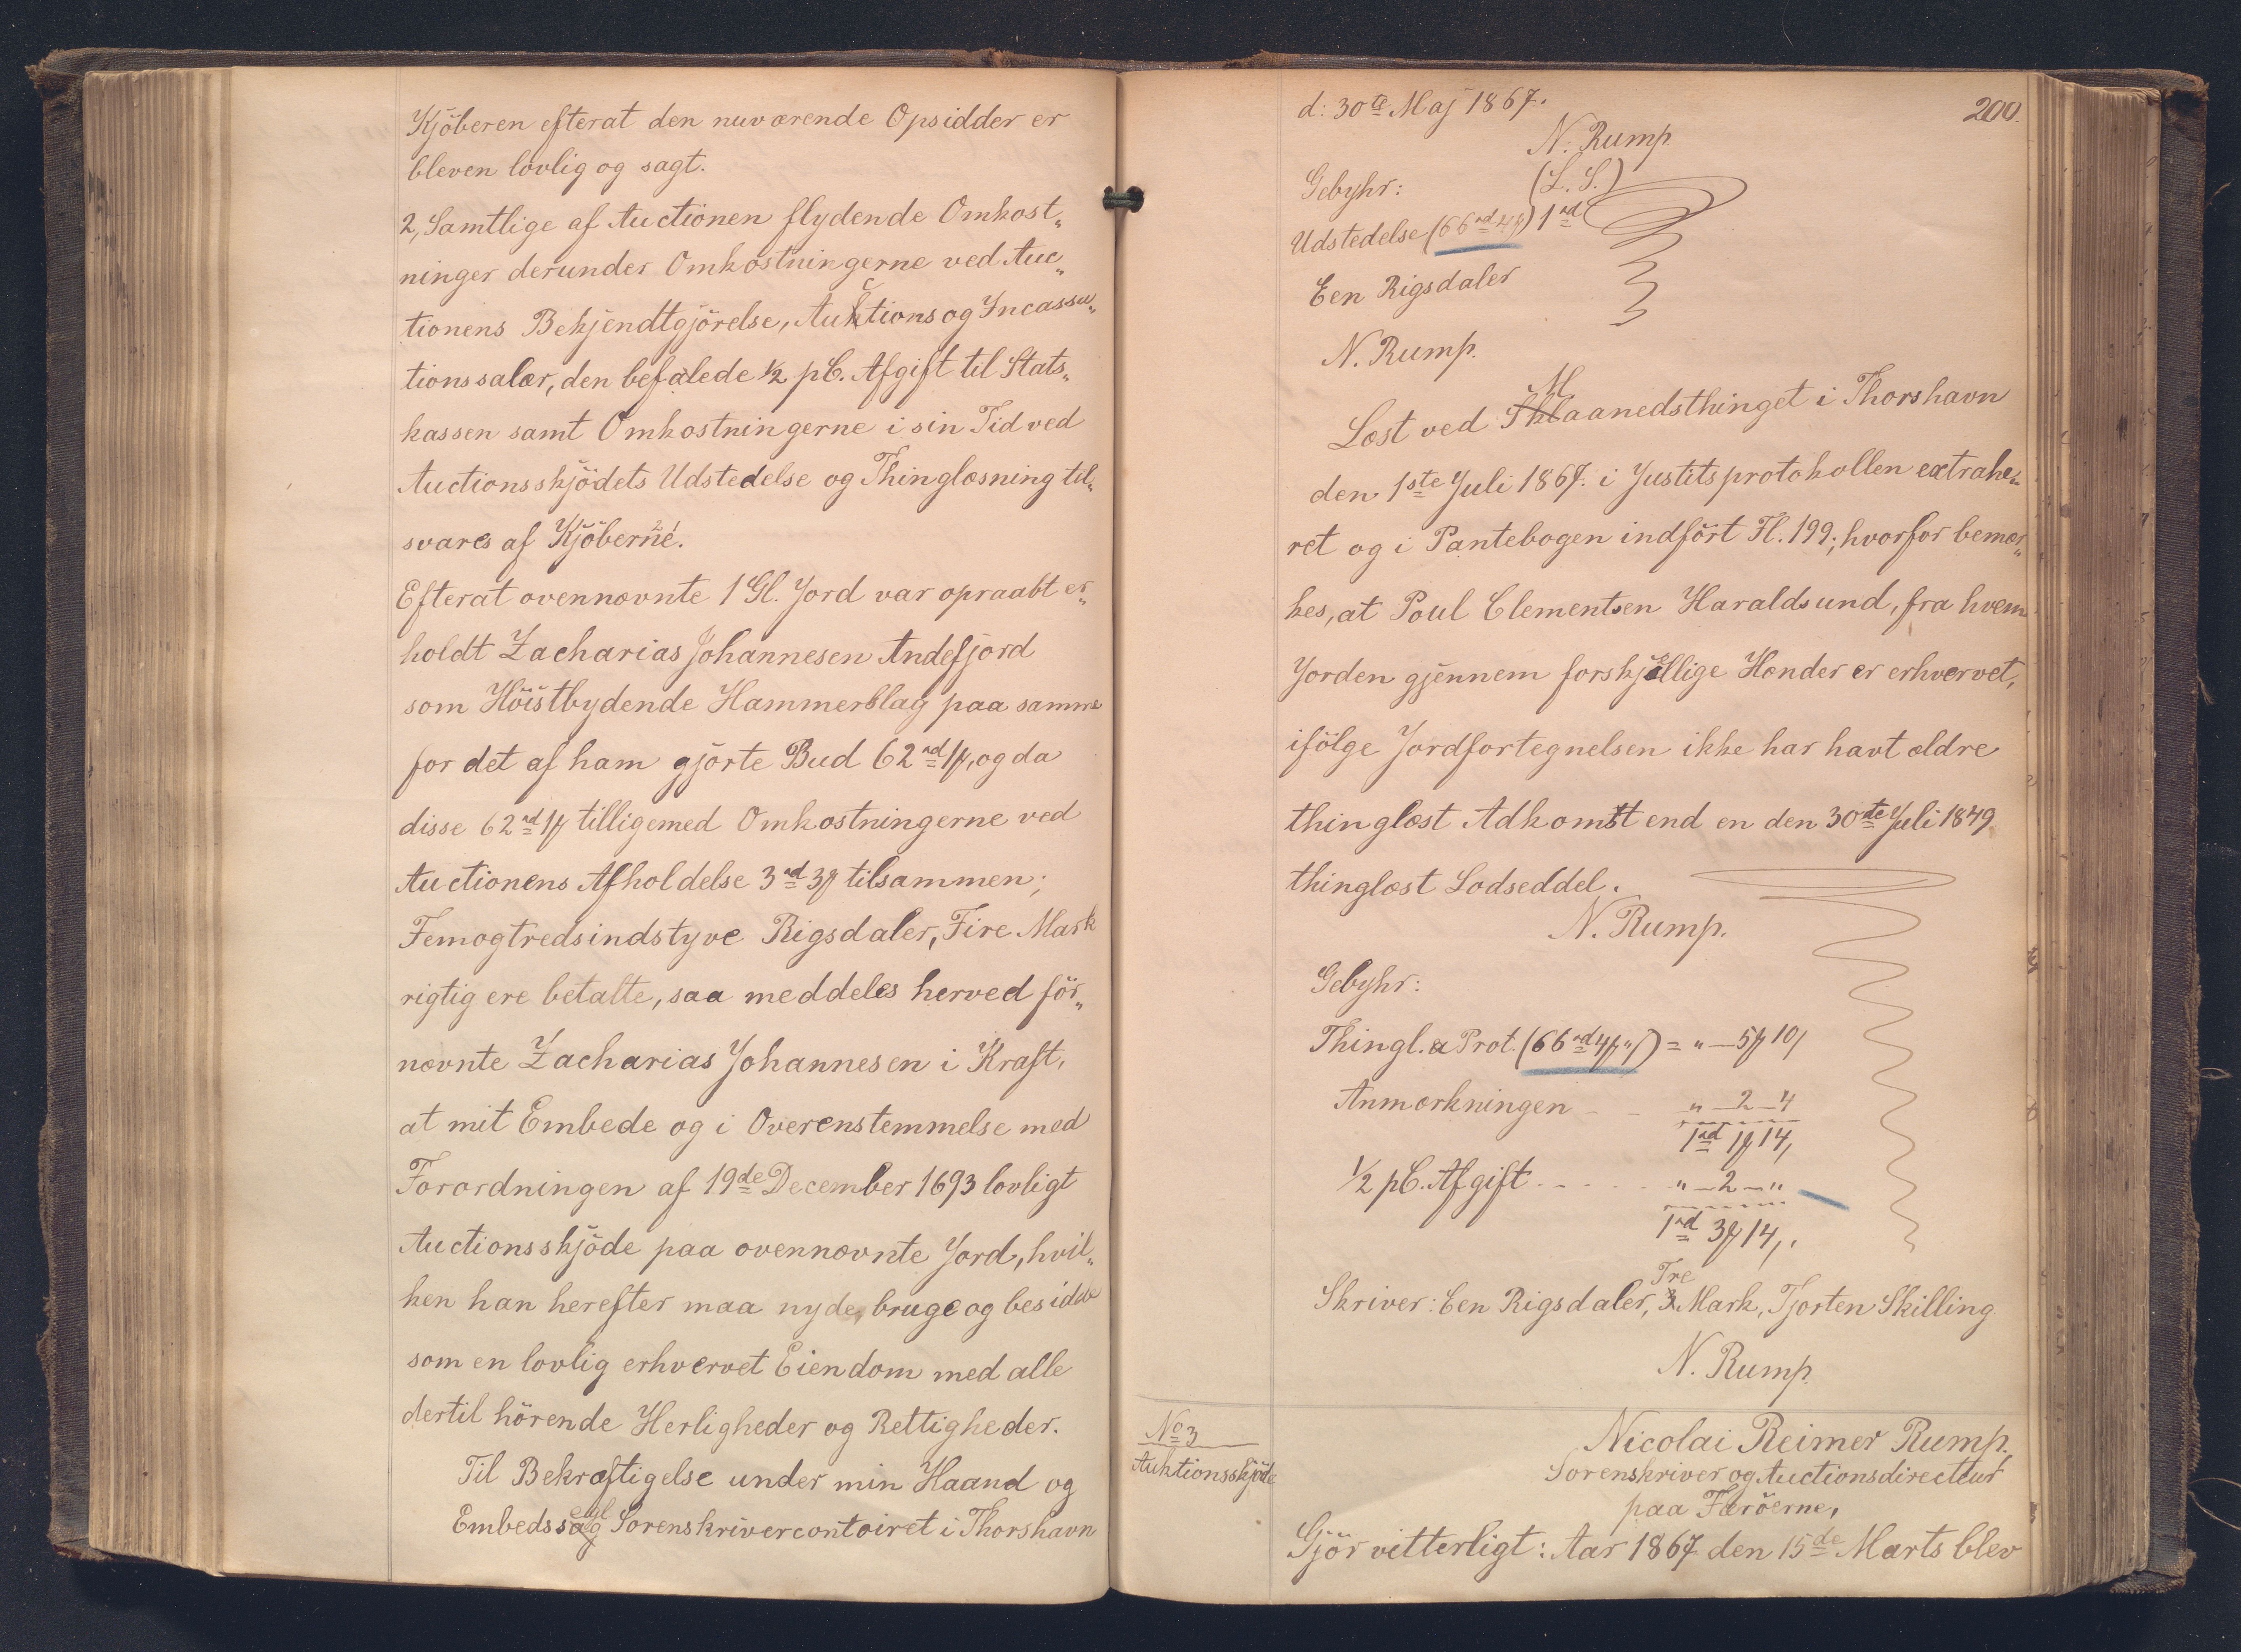 Kjöberen efterat den nuværende Opsidder er
bleven lovlig og sagt.
2, Samtlige af Auctionen flydende Omkost„
ninger derunder Omkostningerne ved Auc„
tionens Bekjendtgjörelse, Auctions og Incassa„
tionssalær, den befalede ½ pC. Afgift til Stats„
kassen samt Omkostningerne i sin Tid ved
Auctionsskjödets Udstedelse og Thinglæsning til„
svares af Kjöberne.
Efterat ovennævnte 1 Gl. Jord var opraabt er„
holdt Zacharias Johannesen Andefjord
som Höistbydende Hammerslag paa samme
for det af ham gjörte Bud 62 rd 1 ꝑ, og da
disse 62 rd 1 ꝑ tilligemed Omkostningerne ved
Auctionens Afholdelse 3 rd 3 ꝑ tilsammen;
Femogtredsindstyve Rigsdaler, Fire Mark
rigtig ere betalte, saa meddeles herved för„
nævnte Zacharias Johannesen i Kraft,
at mit Embede og i Overenstemmelse med
Forordningen af 19de December 1693 lovligt
Auctionsskjöde paa ovennævnte Jord, hvil„
ken han herefter maa nyde, bruge og besidde
som en lovlig erhvervet Eiendom med alle
dertil hörende Herligheder og Rettigheder.
Til Bekræftigelse under min Haand og
Embedssegl Sorenskrivercontoiret i Thorshavn
200.
d: 30te Maj 1867.
N. Rump.
Gebyhr: (L. S.)
Udstedelse (66 rd 4 ꝑ) 1 rd
Een Rigsdaler
N. Rump.
Læst ved Maanedsthinget i Thorshavn
den 1ste Juli 1867. i Justitsprotokollen extrahe„
ret og i Pantebogen indfört Fl. 199; hvorfor bemær„
kes, at Poul Clementsen Haraldsund, fra hvem
Jorden gjennem forskjellige Hænder er erhvervet,
ifölge Jordfortegnelsen ikke har havt ældre
thinglæst Adkomst end en den 30te Juli 1849
thinglæst Lodseddel.
N. Rump.
Gebyhr:
Thingl. a Prot. (66 rd 4 ꝑ „ ) = „ — 5 ꝑ 10
Anmærkningen - - „ — 2 — 4
1 rd 1 ꝑ 14,
½ pC. Afgift - - - - „ — 2 — „
1 rd 3 ꝑ 14,.
Skriver: Een Rigsdaler, Tre Mark, Fjorten Skilling
N. Rump.
No 3
Auktionsskjöde
Nicolai Reimer Rump.
Sorenskriver og Auctionsdirecteur
paa Færöerne,
Gjör vitterligt: Aar 1867 den 15de Marts blev